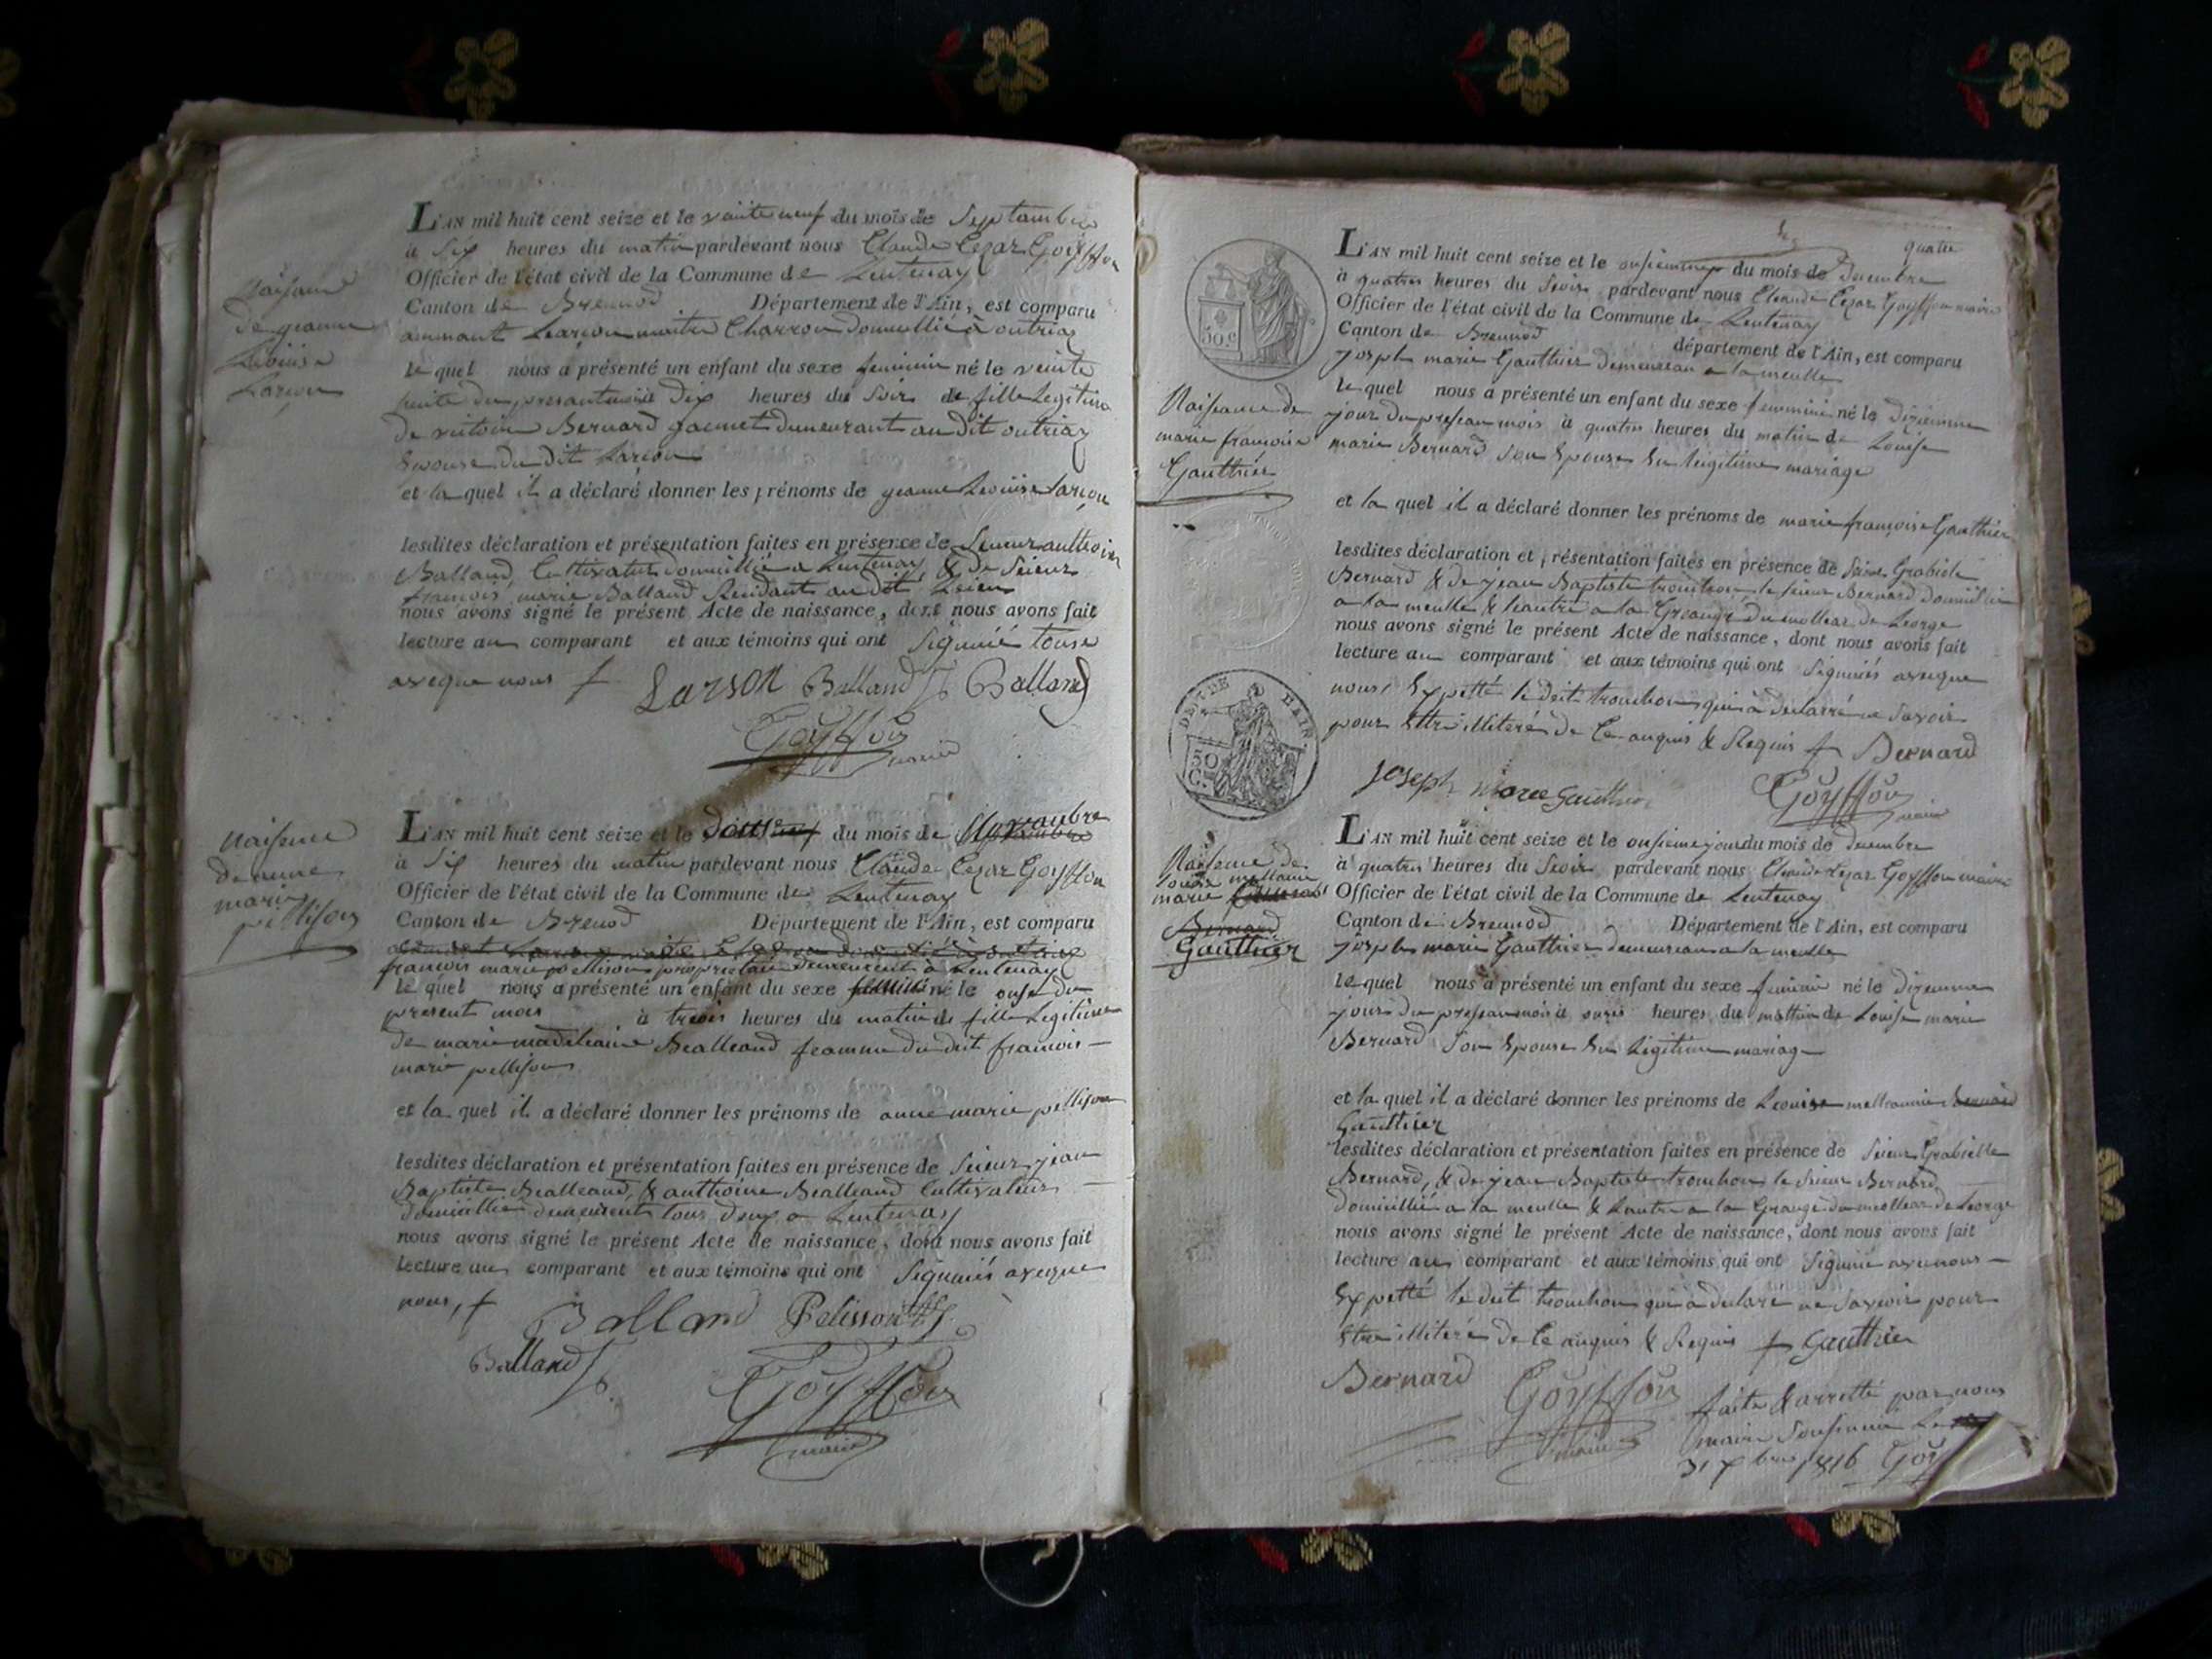 L'AN mil huit cent seize et le vainte neuf du mois de Septambre
à six heures du matin pardevant nous Claude Cezar Goyffon
Officier de l'état civil de la Commune de Lentenay
Canton de Brenod Département de l'Ain, est comparu
Larçon maitre Charron domicillié a outriaz
le quel nous a présenté un enfant du sexe feminin né le veinte
huite du presant mois à Dix heures du Soir de fille Legitime
De victoire Bernard jacmet demeurant au dit outriaz
Epouse du dit Larçon
et la quel il a déclaré donner les prénoms de geanne Leouise Larçon
lesdites déclaration et présentation faites en présence de Sieur anthoine
Balland Cultivateur domicillié a Lentenay & de Sieur
françois marie Balland Residant au dit Lieu
nous avons signé le présent Acte de naissance, dont nous avons fait
lecture au comparant et aux témoins qui ont Signiié touse
aveque nous
Larson Balland Balland
Goyffon
maire
Naisance
de geanne
Leouise
Larçon
L'AN mil huit cent seize et le douse du mois de Novambre
à Six heures du matin pardevant nous Claude Cezar Goyffon
Officier de l'état civil de la Commune de Lentenay
Canton de Brenod Département de l'Ain, est comparu
françois marie pellison propriétaire demeurent à Lentenay
le quel nous a présenté un enfant du sexe né le onse du
présent mois à trois heures du matin de fille Legitime
de marie madeleaine Bealleand feamme du dit françois
marie pellison
et la quel il a déclaré donner les prénoms de anne marie pellison
lesdites déclaration et présentation faites en présence de Sieur jean
Baptiste Bealleand, & anthoine Bealleand Cultivateur
domicillié demeurent tous deux a Lentenay
nous avons signé le présent Acte de naissance, dont nous avons fait
lecture au comparant et aux témoins qui ont Signiiés aveque
nous,
Balland Pelisson
Balland
Goyffon
maire
Naisence
de anne
marie
pellison
quatre
L'AN mil huit cent seize et le onsieme du mois de Decembre
à quatres heures du Soir pardevant nous Claude Cezar Goyffon maire
Officier de l'état civil de la Commune de Lentenay
Canton de Brenod département de l'Ain, est comparu
Joseph marie Gauthier demeurean a la meulle
le quel nous a présenté un enfant du sexe feminin né le Dixiemme
jour du presean mois à quatre heures du matin de Louise
marie Bernard son Epouse En leigitime mariage
et la quel il a déclaré donner les prénoms de marie françoise Gauthier
lesdites déclaration et présentation faites en présence de Sieur Grabiele
Bernard & de jean Baptiste trouchon le sieur Bernard domicillié
a la meulle & leautre a la Greange du mollear de Leorge
nous avons signé le présent Acte de naissance, dont nous avons fait
lecture au comparant et aux témoins qui ont Signiiés aveque
nous, Expetté le deit trouchon qui à declarré ne Savoir
pour Etre illiteré de Ce anquis & Requis Bernard
Joseph marie Gauthier
Goyffon
maire
50.C
Naisance de
marie françoise
Gauthier
DEPT DE L'AIN.
50 C.
L'AN mil huit cent seize et le onsieme jour du mois de Decembre
à quatres heures du Soir pardevant nous Claude Cezar Goyffon maire
Officier de l'état civil de la Commune de Lentenay
Canton de Brenod Département de l'Ain, est comparu
Joseph marie Gauthier demeurean a la meulle
le quel nous a présenté un enfant du sexe feminin né le Dixiemme
jour du presean mois à onze heures du mattin de Louise marie
Bernard Son Epouse En Légitime mariage
et la quel il a déclaré donner les prénoms de Leouise mellanie Bernard
Gauthier
lesdites déclaration et présentation faites en présence de Sieur Grabielle
Bernard, & de jean Baptiste trouchon le Sieur Bernard
Domicillié a la meulle & Lautre a la Grange du meollear de Leorge
nous avons signé le présent Acte de naissance, dont nous avons fait
lecture au comparant et aux témoins qui ont Signiié avec nous
Expetté le deit trouchon qui à declaré ne Savoir pour
Etre illiteré de Ce anquis & Requis Gauthier
Bernard Goyffon
maire
faite & arretté par nous
maire Sousigné Le
31 Xbre 1816 Goy
Naisance de
Louise mellanie
marie
Bernard
Gauthier